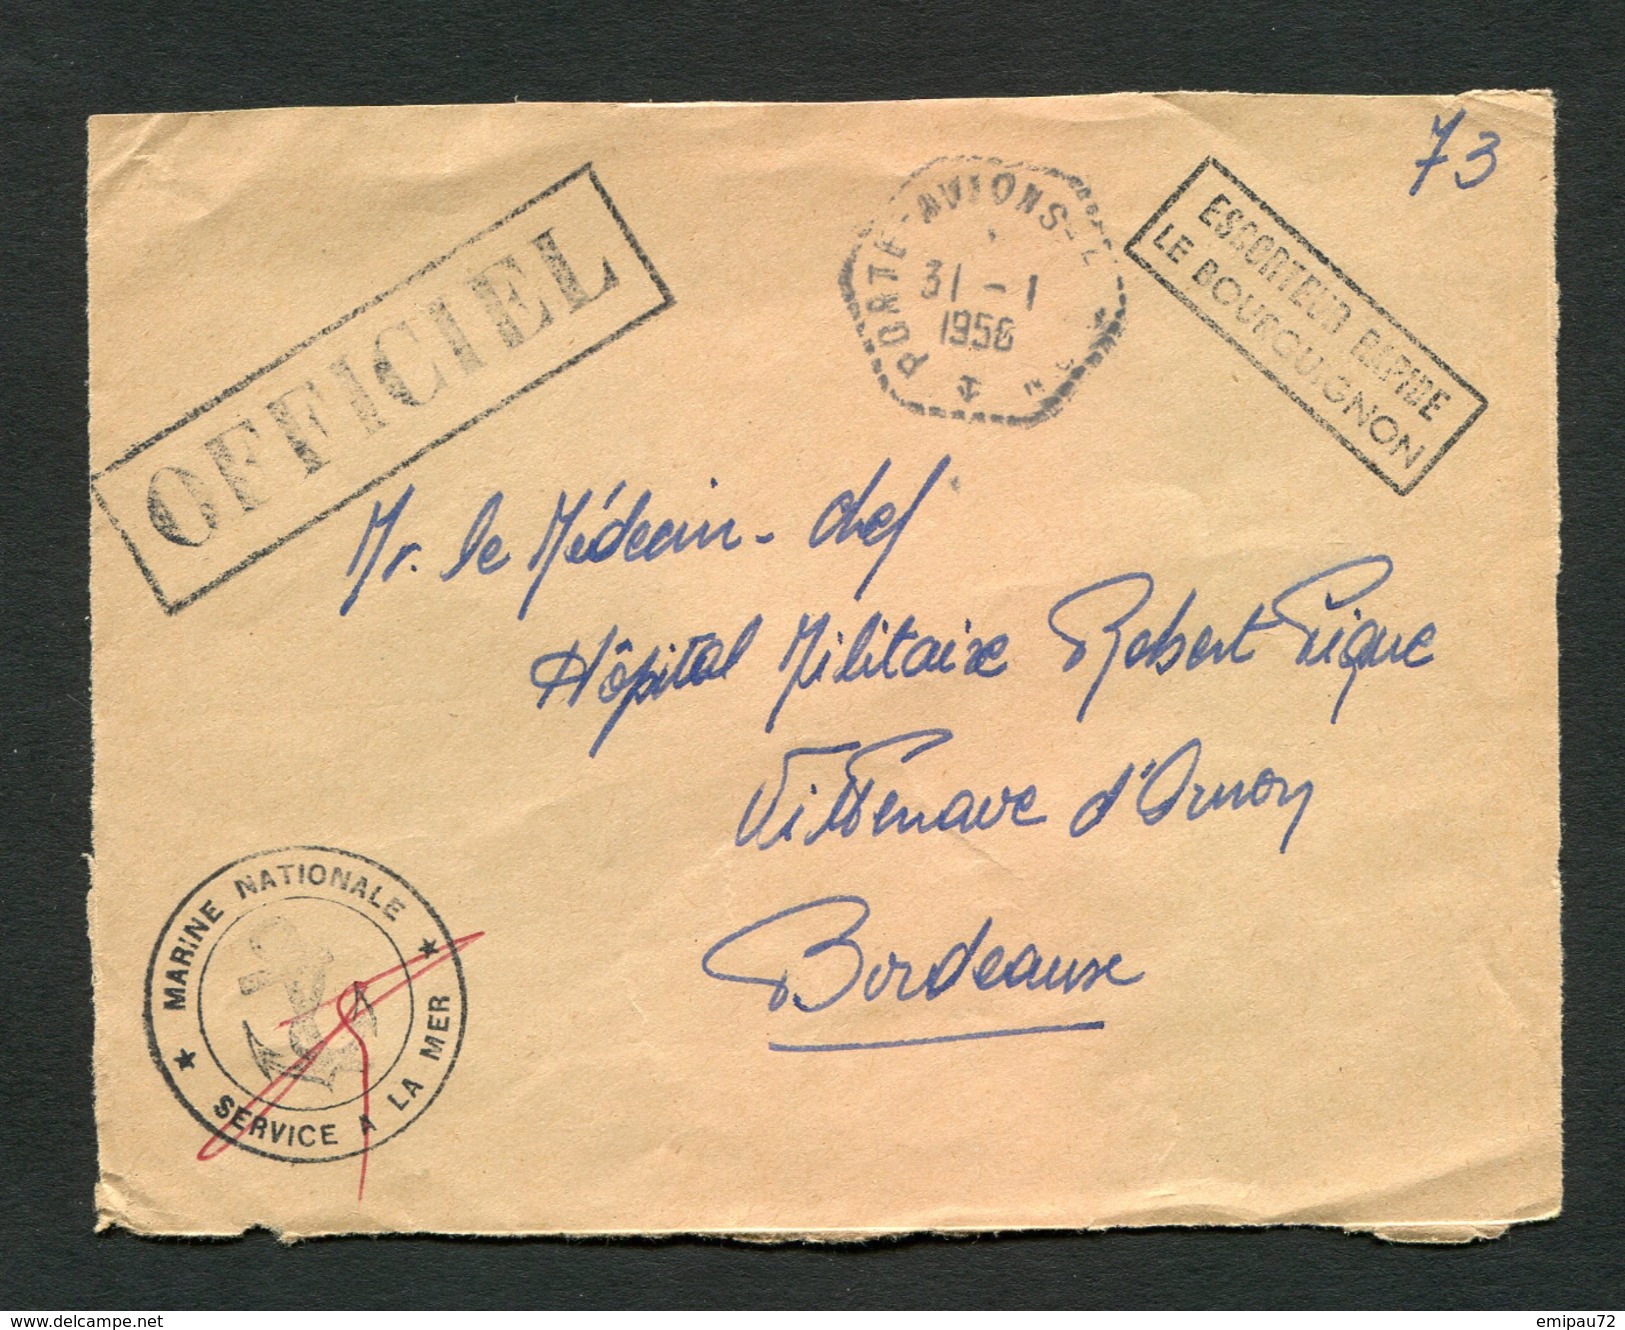 73
OFFICIEL
PORTE-AVIONS-Z
31 -1
1958
ESCORTEUR RAPIDE
LE BOURGUIGNON
Mr. le Médecin-chef
Hôpital Militaire Robert Picqué
Villenave d'Ornon
Bordeaux
MARINE NATIONALE
SERVICE A LA MER
emipau72